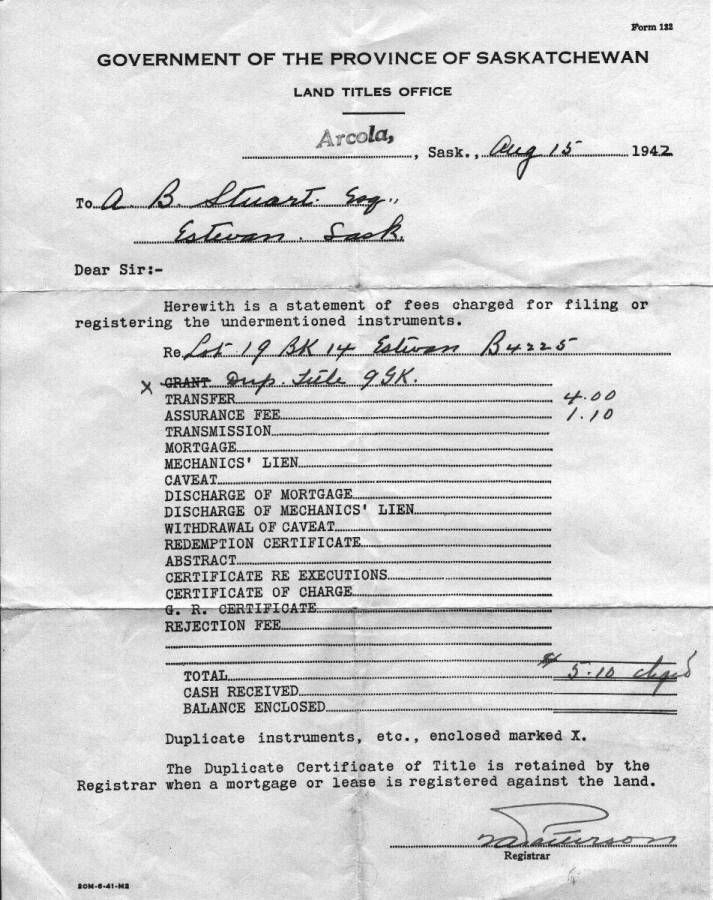 Form 132
GOVERNMENT OF THE PROVINCE OF SASKATCHEWAN
LAND TITLES OFFICE
Arcola, Sask., Aug 15 1942
To A. B. Stuart. Esq.,
Estevan. Sask.
Dear Sir:-
Herewith is a statement of fees charged for filing or
registering the undermentioned instruments.
Re Lot 19 BK 14 Estevan B4225
X GRANT Dup. Title 9GK.
TRANSFER 4.00
ASSURANCE FEE 1.10
TRANSMISSION
MORTGAGE
MECHANICS' LIEN
CAVEAT
DISCHARGE OF MORTGAGE
DISCHARGE OF MECHANICS' LIEN
WITHDRAWAL OF CAVEAT
REDEMPTION CERTIFICATE
ABSTRACT
CERTIFICATE RE EXECUTIONS
CERTIFICATE OF CHARGE
G. R. CERTIFICATE
REJECTION FEE
TOTAL $ 5.10
CASH RECEIVED
BALANCE ENCLOSED
Duplicate instruments, etc., enclosed marked X.
The Duplicate Certificate of Title is retained by the
Registrar when a mortgage or lease is registered against the land.
Patterson
Registrar
20M-6-41-M2